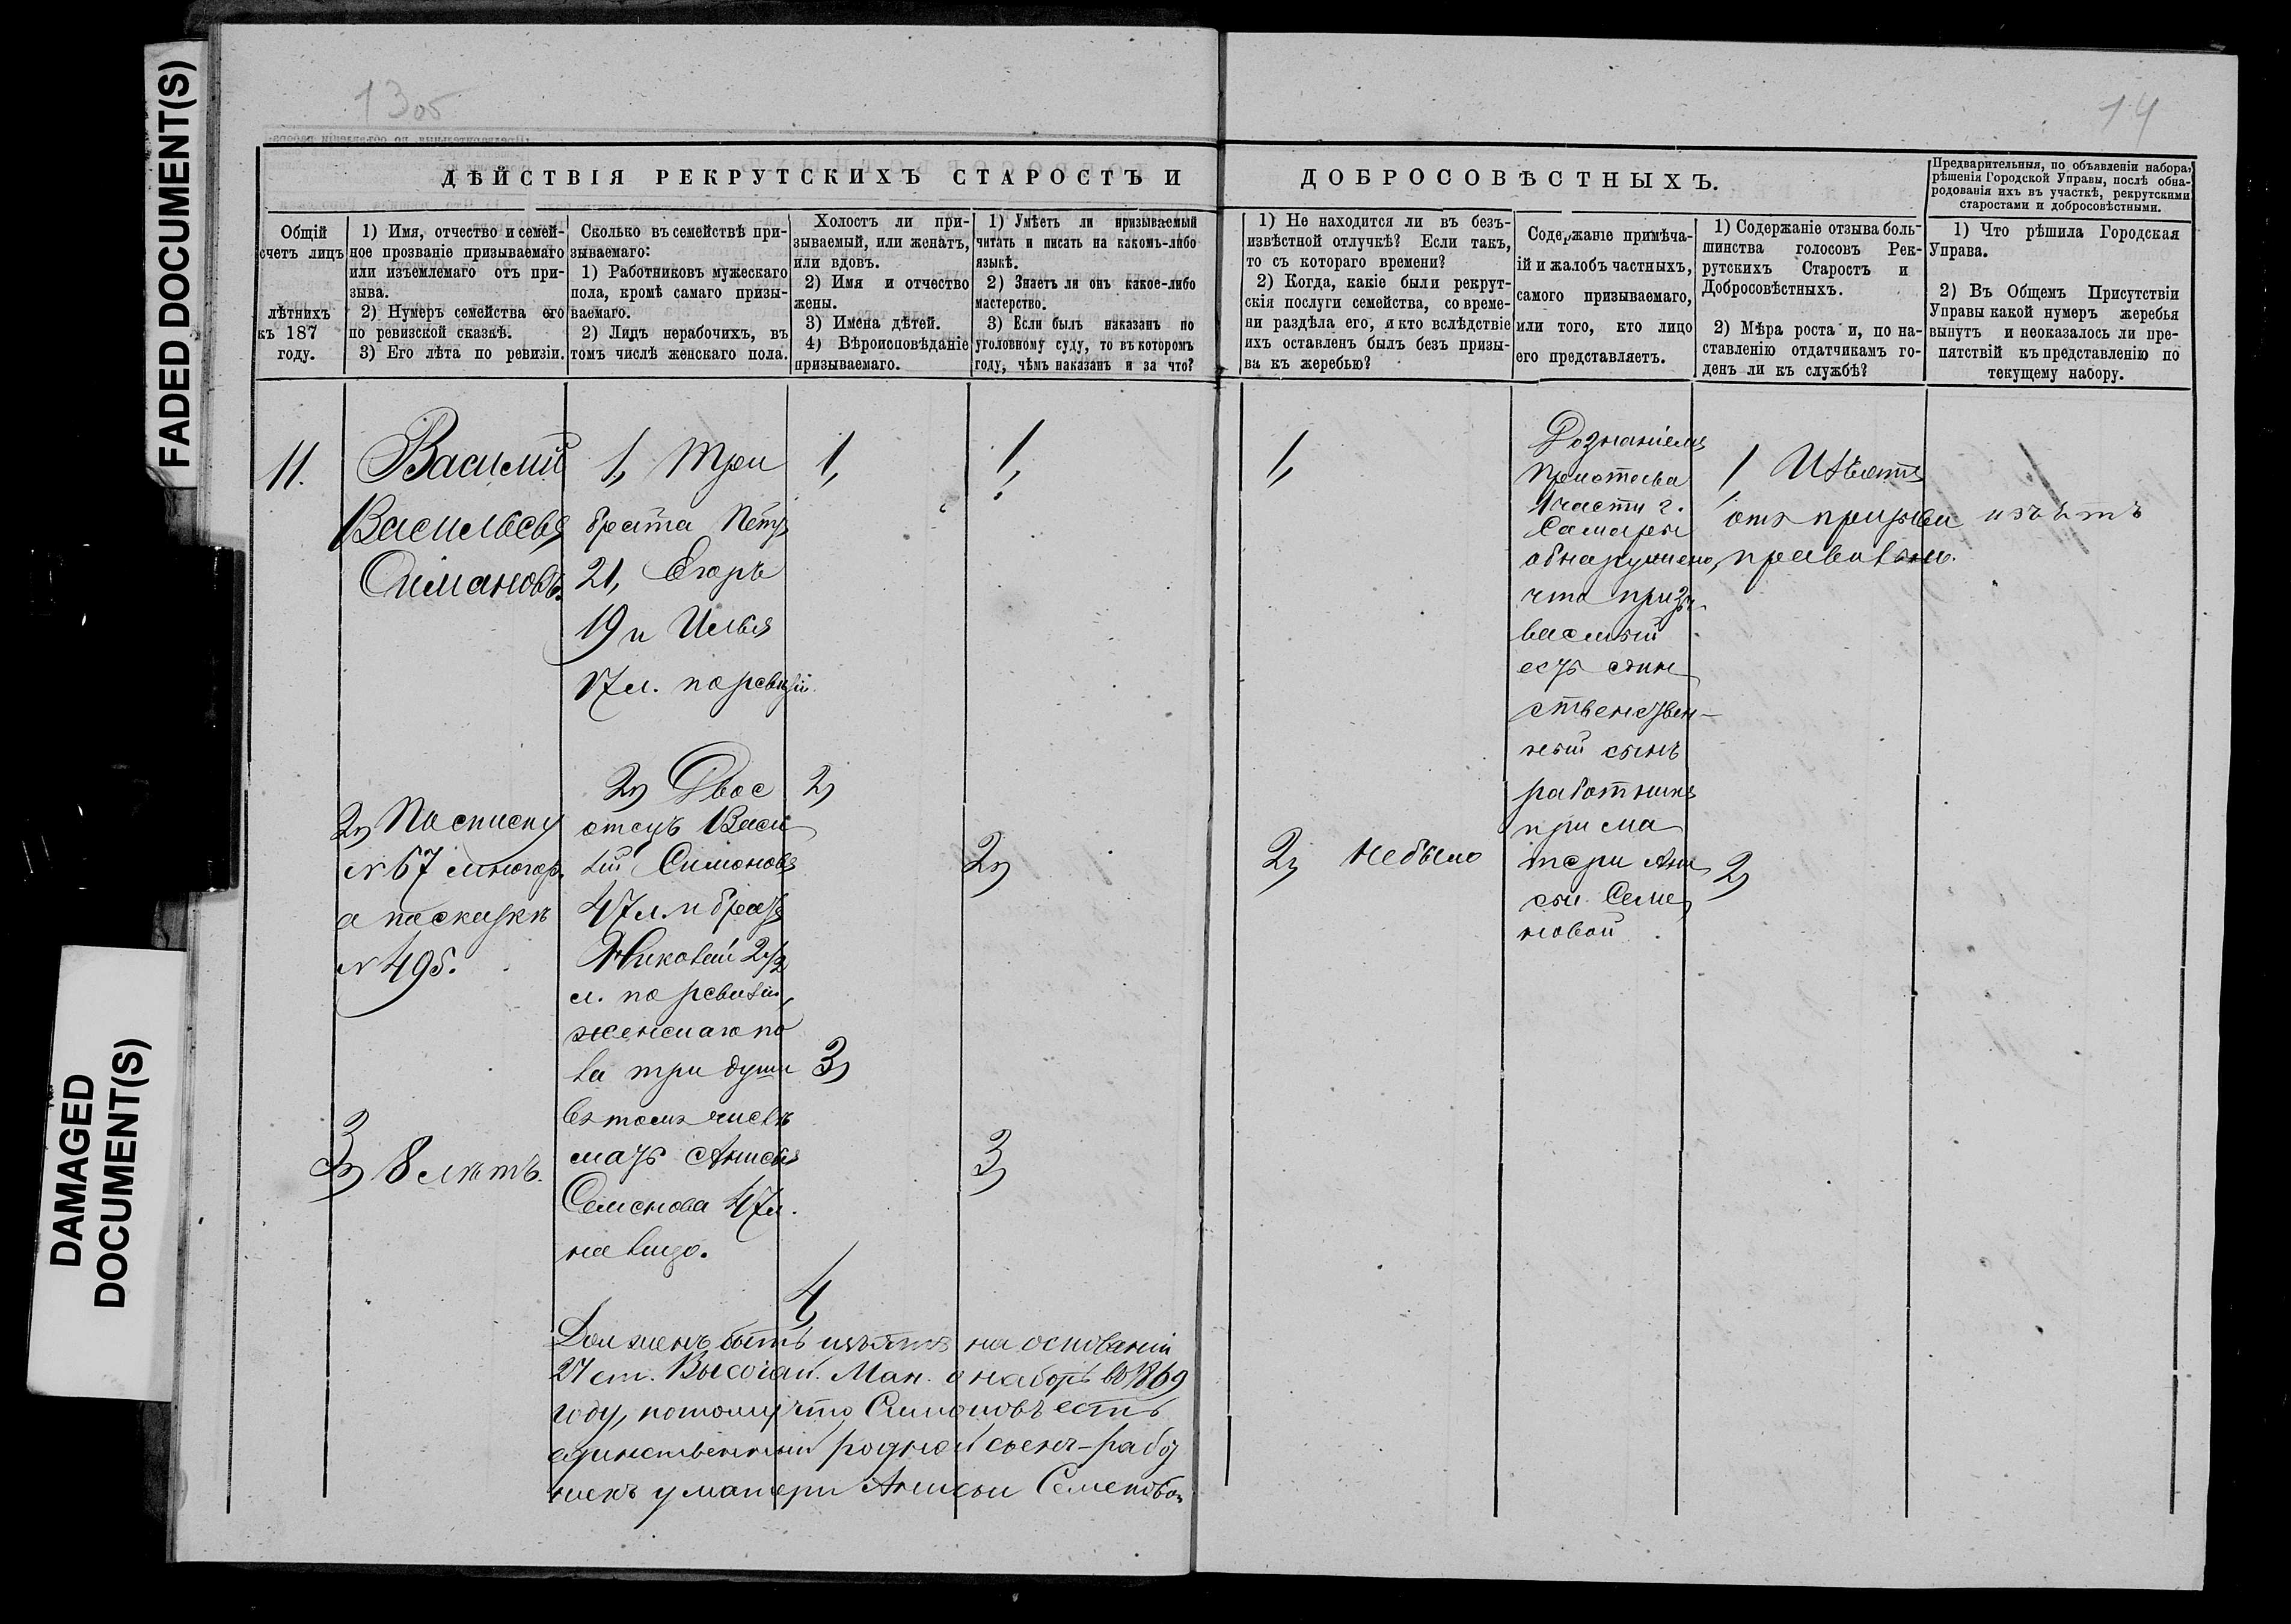 FADED DOCUMENT(S)
DAMAGED
DOCUMENT(S)
13 об
14
ДѢЙСТВІЯ РЕКРУТСКИХЪ СТАРОСТЪ И
ДОБРОСОВѢСТНЫХЪ.
Предварительныя, по объявленіи набора,
рѣшенія Городской Управы, послѣ обна-
родованія ихъ въ участкѣ, рекрутскими
старостами и добросовѣстными.
Общій
счетъ лицъ
лѣтнихъ
къ 187
году.
1) Имя, отчество и семей-
ное прозваніе призываемаго
или изъемлемаго отъ при-
зыва.
2) Нумеръ семейства его
по ревизской сказкѣ.
3) Его лѣта по ревизіи.
Сколько въ семействѣ при-
зываемаго:
1) Работниковъ мужескаго
пола, кромѣ самаго призы-
ваемаго.
2) Лицъ нерабочихъ, въ
томъ числѣ женскаго пола.
Холостъ ли при-
зываемый, или женатъ,
или вдовъ.
2) Имя и отчество
жены.
3) Имена дѣтей.
4) Вѣроисповѣданіе
призываемаго.
1) Умѣетъ ли призываемый
читать и писать на какомъ-либо
языкѣ.
2) Знаетъ ли онъ какое-либо
мастерство.
3) Если былъ наказанъ по
уголовному суду, то въ которомъ
году, чѣмъ наказанъ и за что?
1) Не находится ли въ безъ-
извѣстной отлучкѣ? Если такъ,
то съ котораго времени?
2) Когда, какіе были рекрут-
скія послуги семейства, со време-
ни раздѣла его, и кто вслѣдствіе
ихъ оставленъ былъ безъ призы-
ва къ жеребью?
Содержаніе примѣча-
ій и жалобъ частныхъ,
самого призываемаго,
или того, кто лицо
его представляетъ.
1) Содержаніе отзыва боль-
шинства голосовъ Рек-
рутскихъ Старостъ и
Добросовѣстныхъ.
2) Мѣра роста и, по на-
ставленію отдатчикамъ го-
денъ ли къ службѣ?
1) Что рѣшила Городская
Управа.
2) Въ Общемъ Присутствіи
Управы какой нумеръ жеребья
вынутъ и неоказалось ли пре-
пятствій къ представленію по
текущему набору.
11.
Василий
Васильевъ
Симановъ.
2) По списку
№ 67 многор.
а по сказкѣ
№ 495.
3) 8 лѣтъ.
1, Три
брата Петръ
21, Егоръ
19 и Илья
17 л. по ревизіи.
2) Двое
отецъ Васи
лій Симоновъ
47 л. и братъ
Николай 2 1/2
л. по ревизіи
женскаго по
ла три души
въ томъ числѣ
мать Анисья
Семенова 47 л.
на лицо.
1,
2)
3)
4,
1,
2)
3)
Долженъ быть изъятъ на основаніи
27 ст. Высочай. Ман. о наборѣ въ 1869
году, потому что Симоновъ есть
единственный родной сынъ-работ
никъ у матери Анисьи Семеновой
1,
2) не было
Дознаніемъ
1 части г.
Самары
обнаружено,
что призы
ваемый
есть един
ственствен-
ный сынъ
работникъ
при ма
тери Ани
сьи Семе
новой
1 Изъятъ
отъ призыва
правильно.
2)
изъятъ